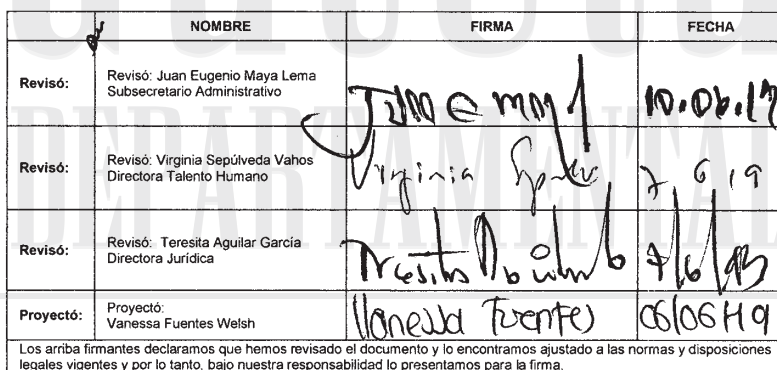 NOMBRE FIRMA FECHA
Revisó: Revisó: Juan Eugenio Maya Lema
Subsecretario Administrativo
Juan E May 10.06.19
Revisó: Revisó: Virginia Sepúlveda Vahos
Directora Talento Humano
Virginia 7 6 19
Revisó: Revisó: Teresita Aguilar García
Directora Jurídica
Teresita 7/6/19
Proyectó: Proyectó:
Vanessa Fuentes Welsh
Vanessa Fuentes 06/06/19
Los arriba firmantes declaramos que hemos revisado el documento y lo encontramos ajustado a las normas y disposiciones
legales vigentes y por lo tanto, bajo nuestra responsabilidad lo presentamos para la firma.
DEPARTAMENTAL